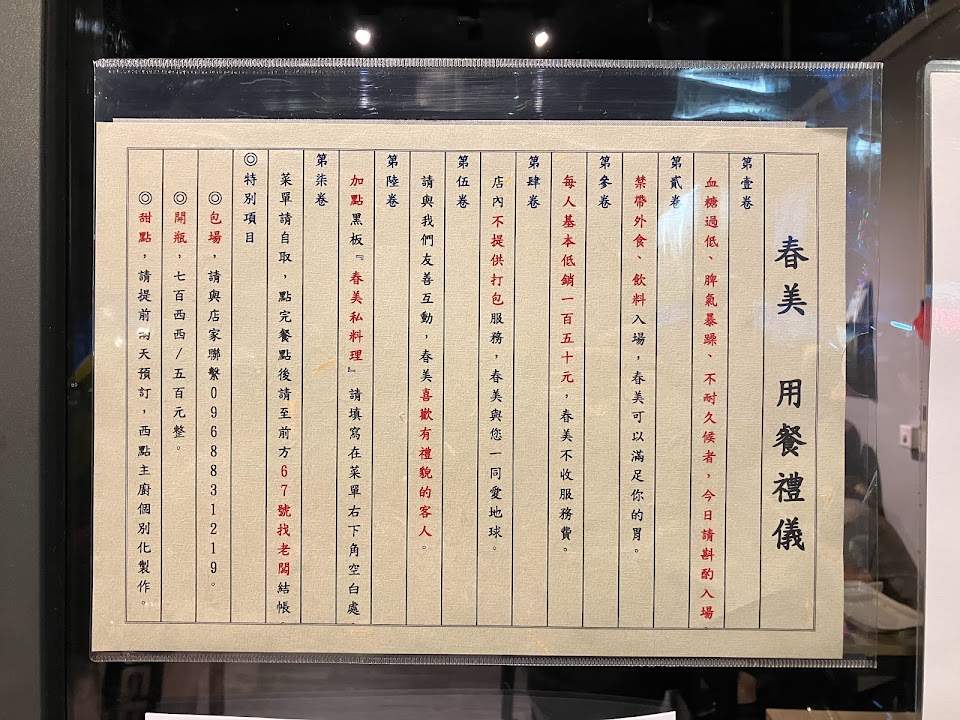 春美 用餐禮儀
第壹卷
血糖過低、脾氣暴躁、不耐久候者，今日請斟酌入場。
第貳卷
禁帶外食、飲料入場，春美可以滿足你的胃。
第參卷
每人基本低銷一百五十元，春美不收服務費。
第肆卷
店內不提供打包服務，春美與您一同愛地球。
第伍卷
請與我們友善互動，春美喜歡有禮貌的客人。
第陸卷
加點黑板『春美私料理』請填寫在菜單右下角空白處。
第柒卷
菜單請自取，點完餐點後請至前方67號找老闆結帳。
◎特別項目
◎包場，請與店家聯繫0968831219。
◎開瓶，七百西西/五百元整。
◎甜點，請提前兩天預訂，西點主廚個別化製作。